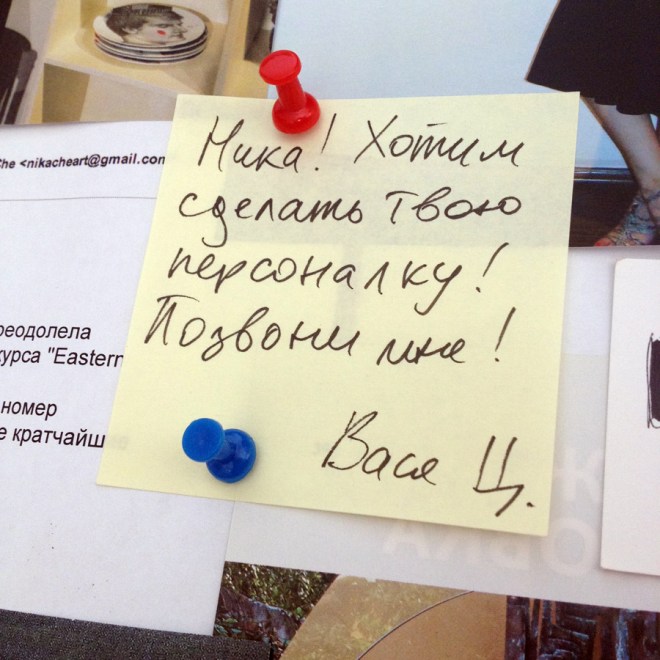 Ника! Хотим
сделать твою
персоналку!
Позвони мне!
Вася Ц.
he <nikacheart@gmail.com
реодолела
урса "Eastern
номер
е кратчайш